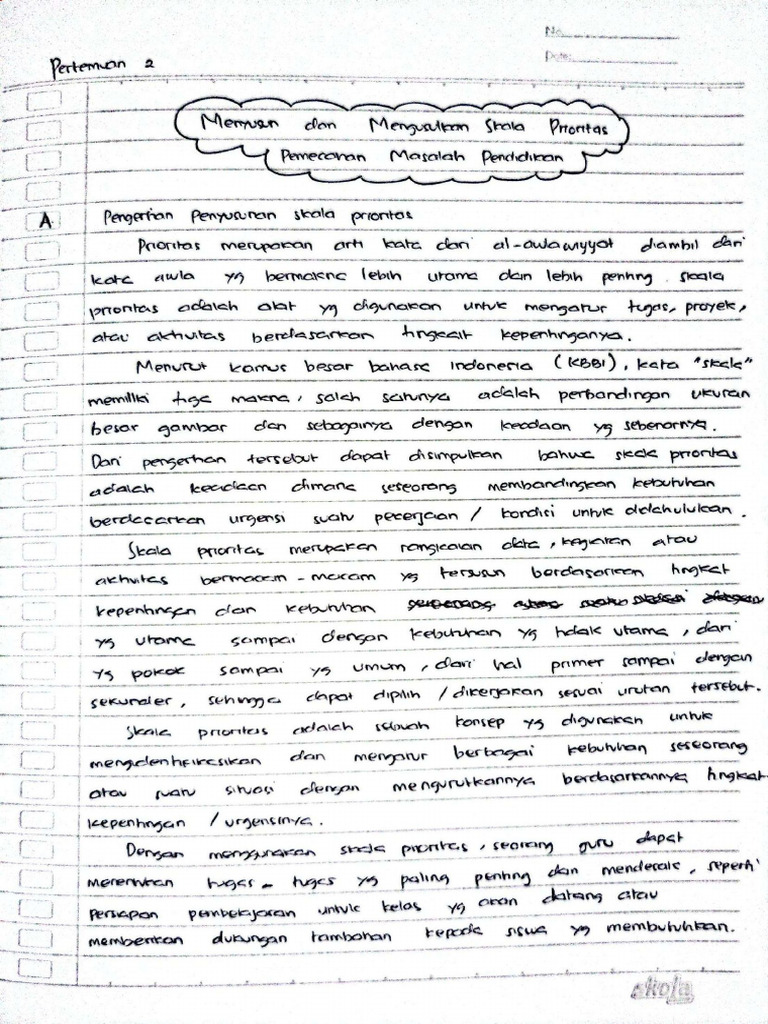 No.
Date:
Pertemuan 2
Menyusun dan Mengusulkan Skala Prioritas
Pemecahan Masalah Pendidikan
A. Pengertian Penyusunan skala prioritas
Prioritas merupakan arti kata dari al-awlawiyyat diambil dari
kata awla yg bermakna lebih utama dan lebih penting. skala
prioritas adalah alat yg digunakan untuk mengatur tugas, proyek,
atau aktivitas berdasarkan tingkat kepentinganya.
Menurut kamus besar bahasa Indonesia (KBBI), kata "skala"
memiliki tiga makna, salah satunya adalah perbandingan ukuran
besar gambar dan sebagainya dengan keadaan yg sebenarnya.
Dari pengertian tersebut dapat disimpulkan bahwa skala prioritas
adalah keadaan dimana seseorang membandingkan kebutuhan
berdasarkan urgensi suatu pekerjaan / kondisi untuk didahulukan.
Skala prioritas merupakan rangkaian data, kegiatan atau
aktivitas bermacam-macam yg tersusun berdasarkan tingkat
kepentingan dan kebutuhan
yg utama sampai dengan kebutuhan yg tidak utama, dari
yg pokok sampai yg umum, dari hal primer sampai dengan
sekunder, sehingga dapat dipilih / dikerjakan sesuai urutan tersebut.
Skala prioritas adalah sebuah konsep yg digunakan untuk
mengidentifikasikan dan mengatur berbagai kebutuhan seseorang
atau suatu situasi dengan mengurutkannya berdasarkannya tingkat
kepentingan / urgensinya.
Dengan menggunakan skala prioritas, seorang guru dapat
menentukan tugas-tugas yg paling penting dan mendesak, seperti
persiapan pembelajaran untuk kelas yg akan datang atau
memberikan dukungan tambahan kepada siswa yg membutuhkan.
skola